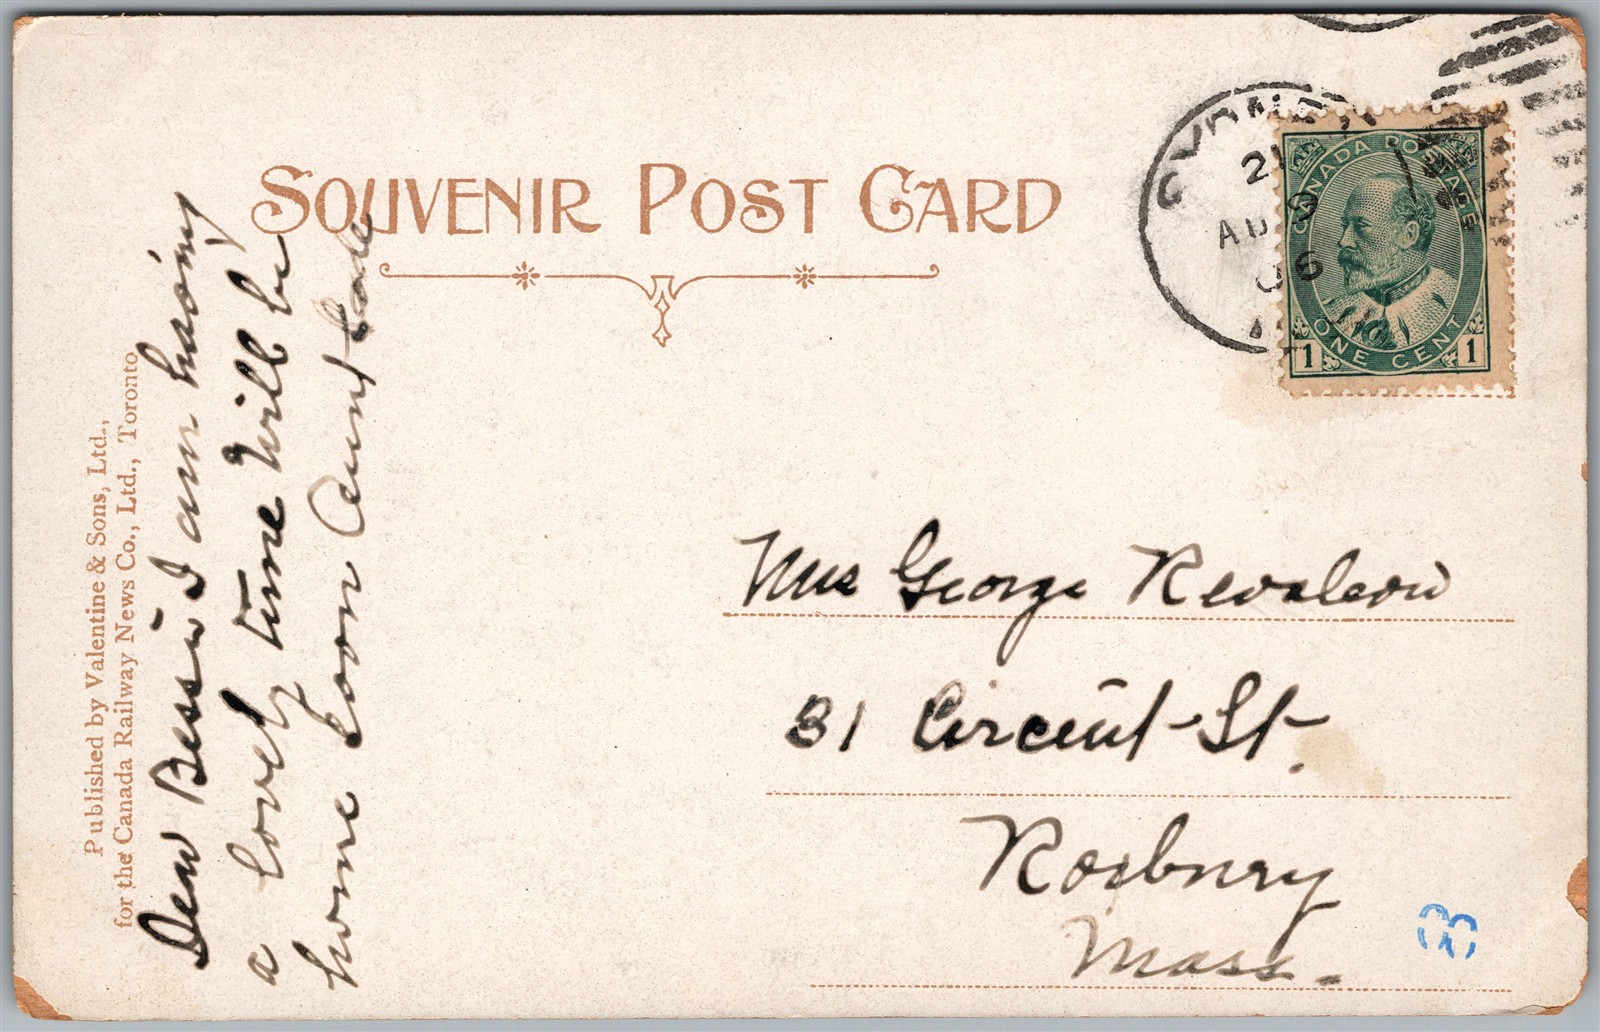 SOUVENIR POST CARD
SYDNEY
21
AU 9
06
CANADA POSTAGE
ONE CENT
1 1
Published by Valentine & Sons, Ltd.,
for the Canada Railway News Co., Ltd., Toronto
Dear Bessie I am having
a lovely time Will be
home soon Aunt
Mrs George Revaleon
31 Circuit St.
Roxbury
Mass.